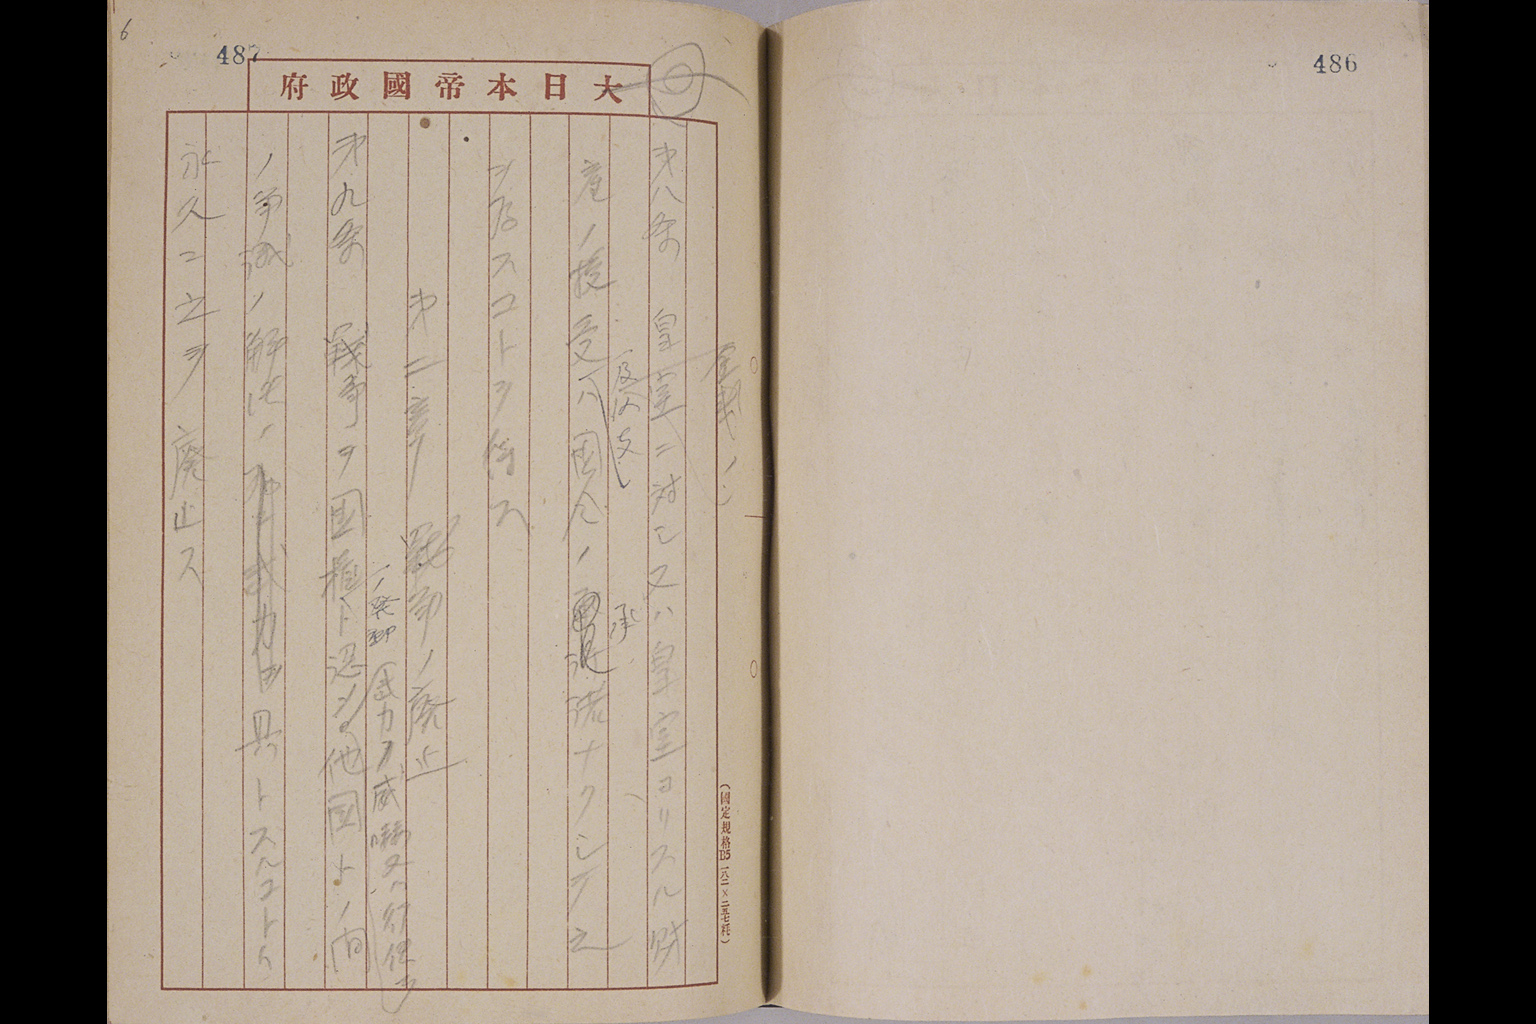 486
6
487
大日本帝國政府
ノ
第八条 皇室ニ対シ又ハ皇室ヨリスル財
及収支
承
産ノ授受八国会ノ諾ナクシテ之
ヲ為スコトヲ得ス
第二章 戦争ノ廃止
ノ発動 武力ノ威嚇又ハ行使ヲ
第九条 戦争ヲ国権ト認メ他国トノ間
ノ争議ノ解決ノ 武力ヲ具トスルコトハ
永久ニ之ヲ廃止ス
(國定規格D5 一八二×二五七粍)